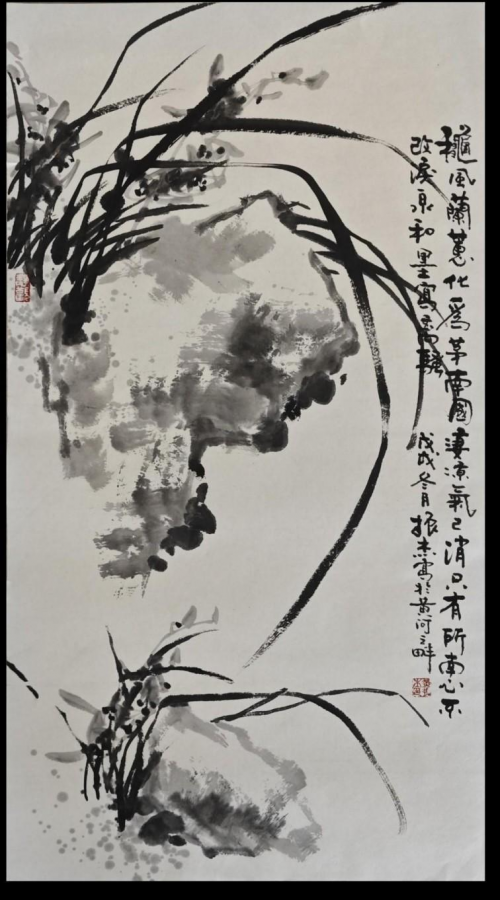 龝風蘭蕙化爲茅南國凄涼氣已消只有所南心不
改淚泉和墨寫離騷 戊戌冬月振杰寫於黄河之畔